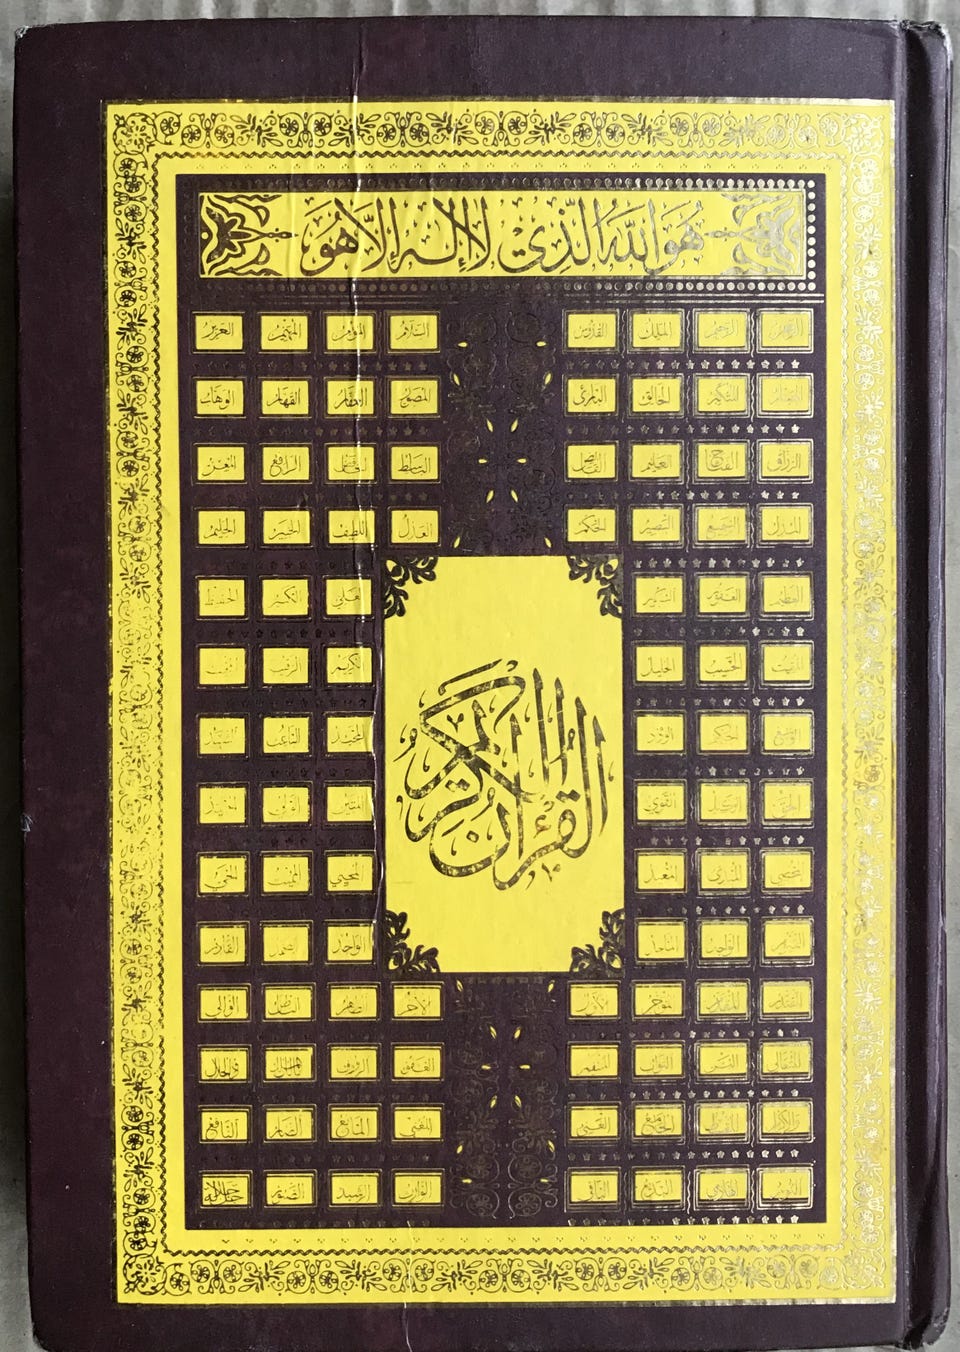 هُوَ اللَّهُ الَّذِيْ لَا إِلٰهَ إِلَّا هُوَ
الرحيم الملك القدوس السلام المؤمن المهيمن العزيز
المتكبر الخالق البارئ المصور الغفار القهار الوهاب
الرزاق الفتاح العليم القابض الباسط الرافع المعز
المذل السميع البصير الحكم العدل اللطيف الخبير الحليم
العظيم الغفور العلي الكبير الحفيظ
المقيت الحسيب الجليل الكريم الرقيب
الواسع الحكيم الودود المجيد الباعث الشهيد
القوي المتين الولي الحميد
القرءان الكريم
المحصي المبدئ المعيد المحيي المميت الحي
القيوم الواجد الماجد الواحد الصمد القادر
المقتدر المقدم المؤخر الأول الآخر الظاهر الباطن الوالي
المتعالي البر التواب المنتقم العفو الرؤف ذو الجلال
الغني المغني المانع الضار النافع
النور الهادي البديع الباقي الوارث الرشيد الصبور جل جلاله